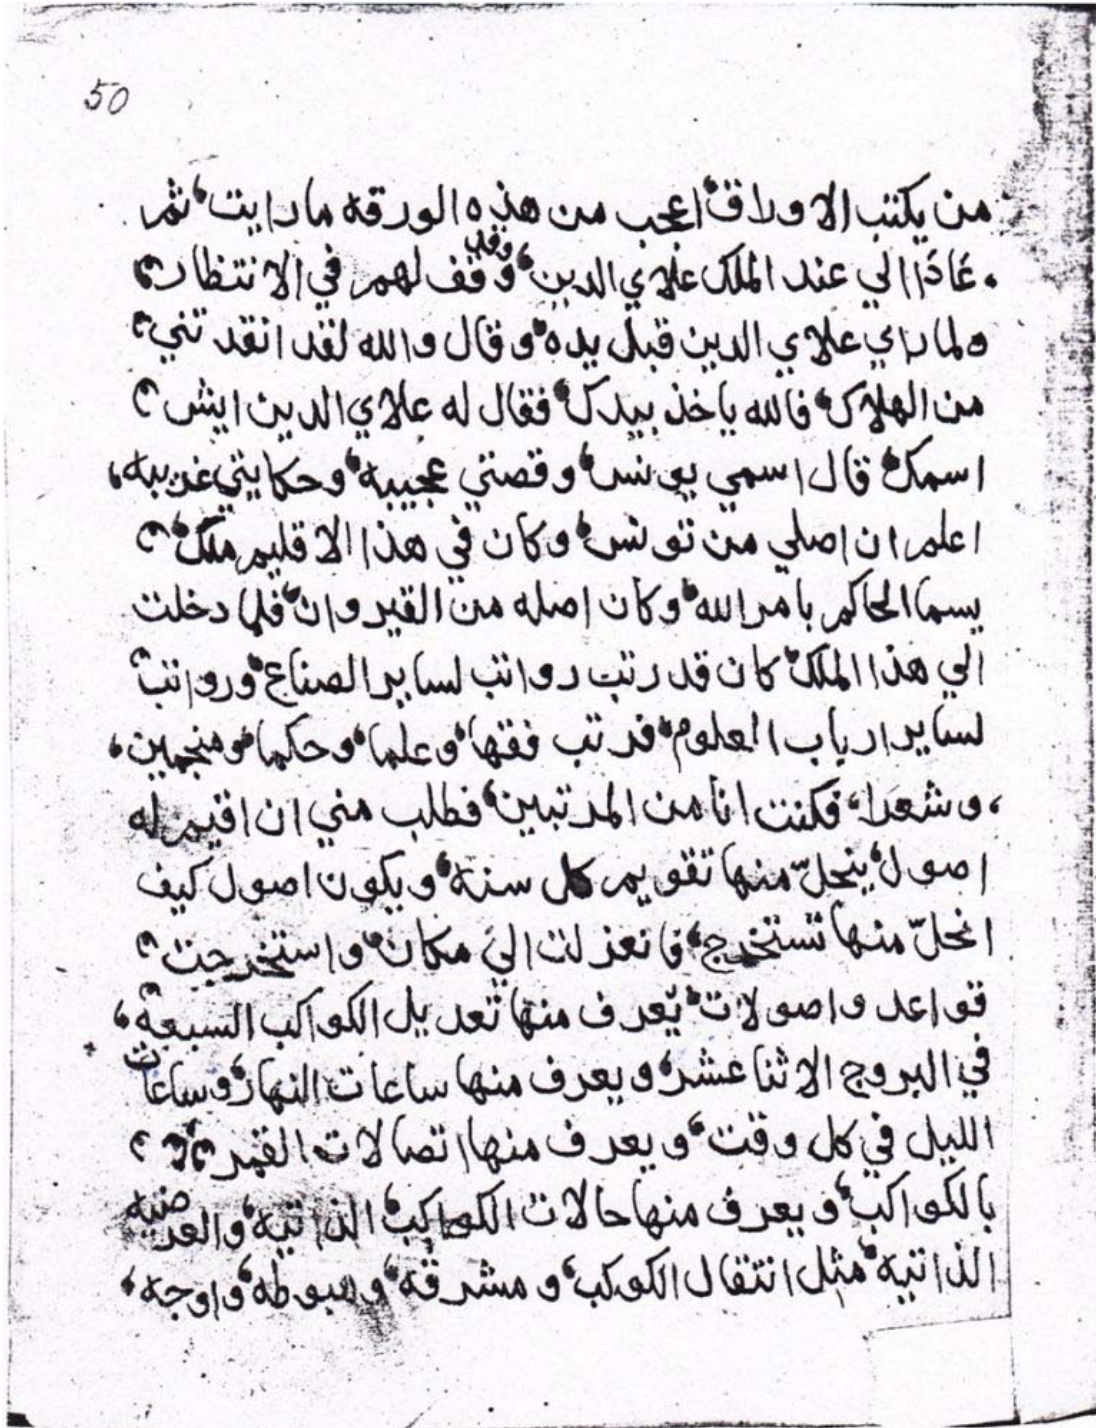 50
من يكتب الاوراق، اعجب من هذه الورقه ما رايت، ثم
عَادَا الي عند الملك علاي الدين، وقف وقف لهم في الانتظار،
ولما راي علاي الدين قبل يده، وقال والله لقد انقدتني،
من الهلاك، فالله ياخذ بيدك، فقال له علاي الدين ايش،
اسمك، قال اسمي يونس، وقصتي عجيبه، وحكايتي غريبه،
اعلم ان اصلي من تونس، وكان في هذا الاقليم ملك،
يسما الحاكم بامر الله، وكان اصله من القيروان، فلما دخلت
الي هذا الملك، كان قد رتب رواتب لساير الصناع، ورواتب
لساير ارباب العلوم، فرتب فقها، وعلما، وحكما، ومنجمين،
وشعرا، فكنت انا من المرتبين، فطلب مني ان اقيم له
اصول، ينحلّ منها تقويم كل سنة، ويكون اصول كيف
انحلّ منها تستخرج، فانعزلت الي مكان، واستخرجت،
قواعد واصولات، يّعرف منها تعديل الكواكب السبعة،
في البروج الاثنا عشر، ويعرف منها ساعات النهار، وساعات
الليل في كل وقت، ويعرف منها اتصالات القمر،
بالكواكب، ويعرف منها حالات الكواكب، الذاتية، والعرضيه
الذاتية، مثل انتقال الكوكب، ومشرقة، وهبوطه، واوجه،